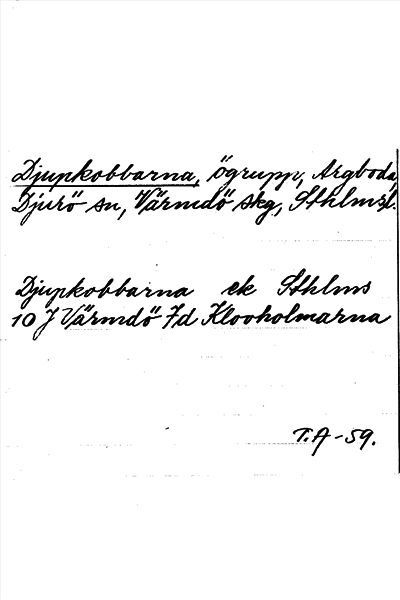 Djupkobbarna, ögrupp, Argboda,
Djurö sn, Värmdö skg, Sthlms l.
Djupkobbarna ek Sthlms
10 J Värmdö 7d Klovholmarna
T.A-59.